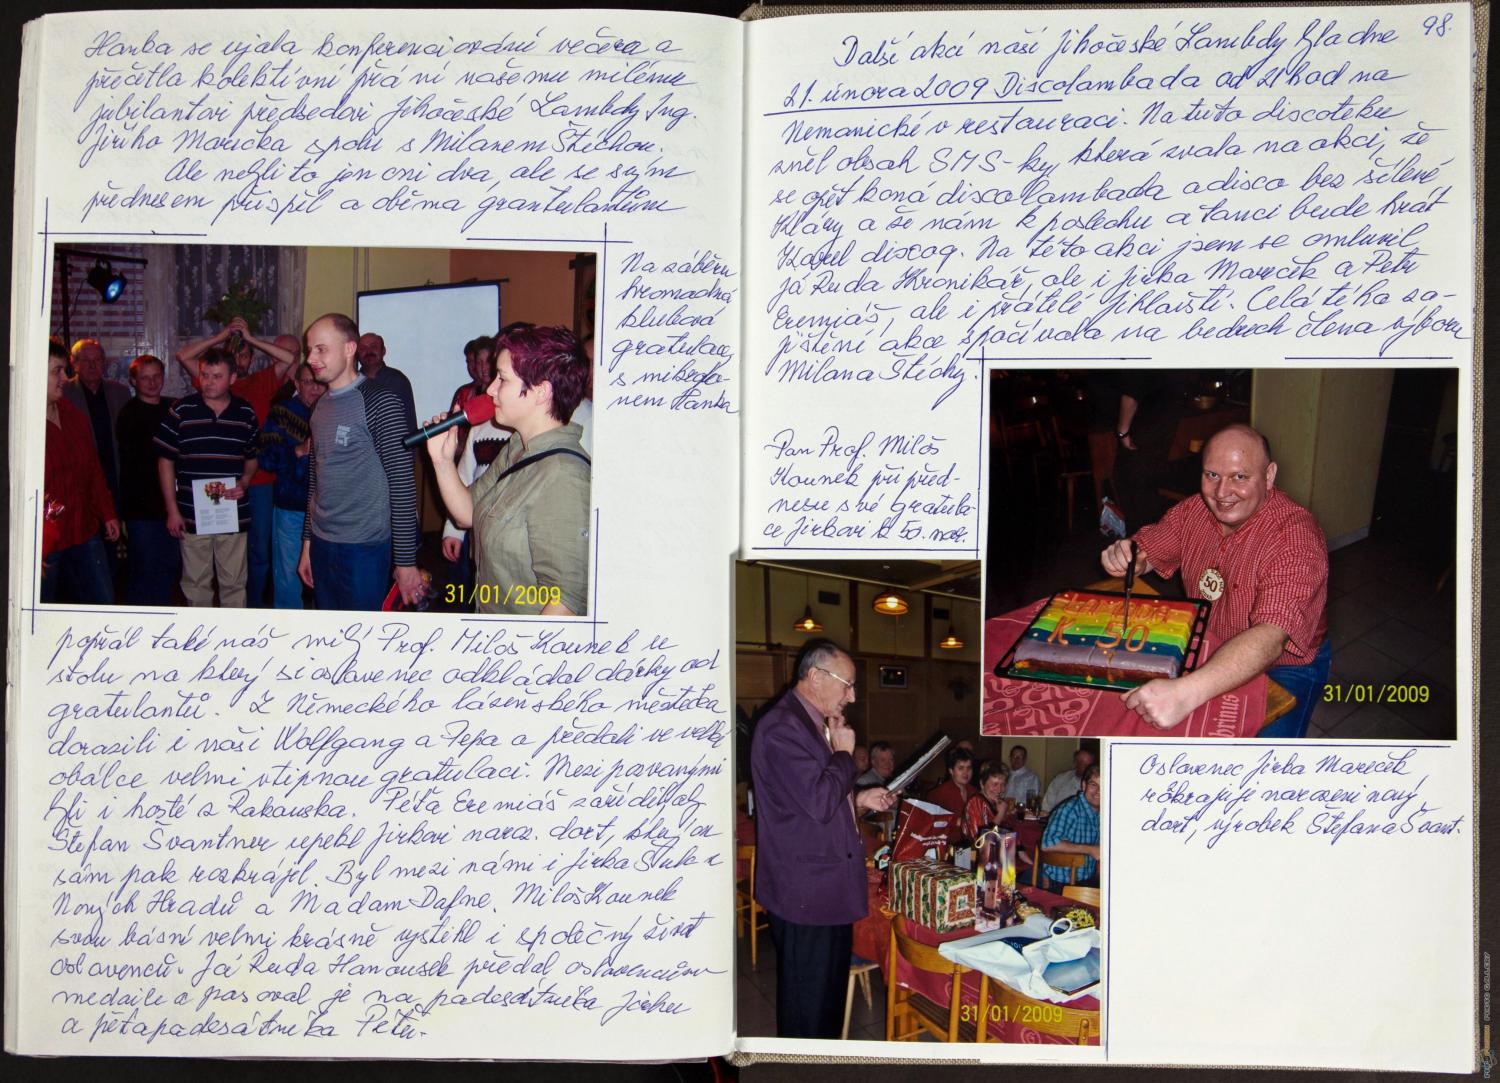 Hanka se ujala konferenciování večera a
přečetla kolektivní přání našemu milému
jubilantovi předsedovi Jihočeské Lambdy Ing.
Jiřího Marečka spolu s Milanem Štěchou.
Ale nebyli to jen oni dva, ale se svým
přednesem přispěl a oběma gratulantům
Na záběru
hromadná
klubová
gratulace,
s mikrofo-
nem Hanka
31/01/2009
popřál také náš milý Prof. Miloš Kounek u
stolu na který si oslavenec odkládal dárky od
gratulantů. Z Německého lázeňského městečka
dorazili i naši Wolfgang a Pepa a předali ve velké
obálce velmi vtipnou gratulaci. Mezi pozvanými
byli i hosté z Rakouska. Péťa Eremiáš zařídil, aby
Štefan Švantner upekl Jirkovi naroz. dort, který on
sám pak rozkrájel. Byl mezi námi i Jirka Štula z
Nových Hradů a Madam Dafne. Miloš Kounek
svou básní velmi krásně vystihl i společný život
oslavenců. Já Ruda Hanousek předal oslavencům
medaile a pasoval je na padesátníka Jirku
a pětapadesátníka Péťu.
98.
Další akcí naší Jihočeské Lambdy byla dne
21. února 2009 Discolambada od 21 hod na
Nemanické v restauraci. Na tuto discoteku
zněl obsah SMS-ky, která zvala na akci, že
se opět koná discolambada a disco bez šílené
Kláry a že nám k poslechu a tanci bude hrát
Karel discog. Na této akci jsem se omluvil
já Ruda Kronikář, ale i Jirka Mareček a Petr
Eremiáš, ale i přátelé Jihlavští. Celá tíha za-
jištění akce spočívala na bedrech člena výboru
Milana Štěchy.
Pan Prof. Miloš
Kounek při před-
nesu své gratula-
ce Jirkovi k 50. nar.
LAMBDA
K 50
50
31/01/2009
31/01/2009
Oslavenec Jirka Mareček
rozkrajuje narozeninový
dort, výrobek Štefana Švant.